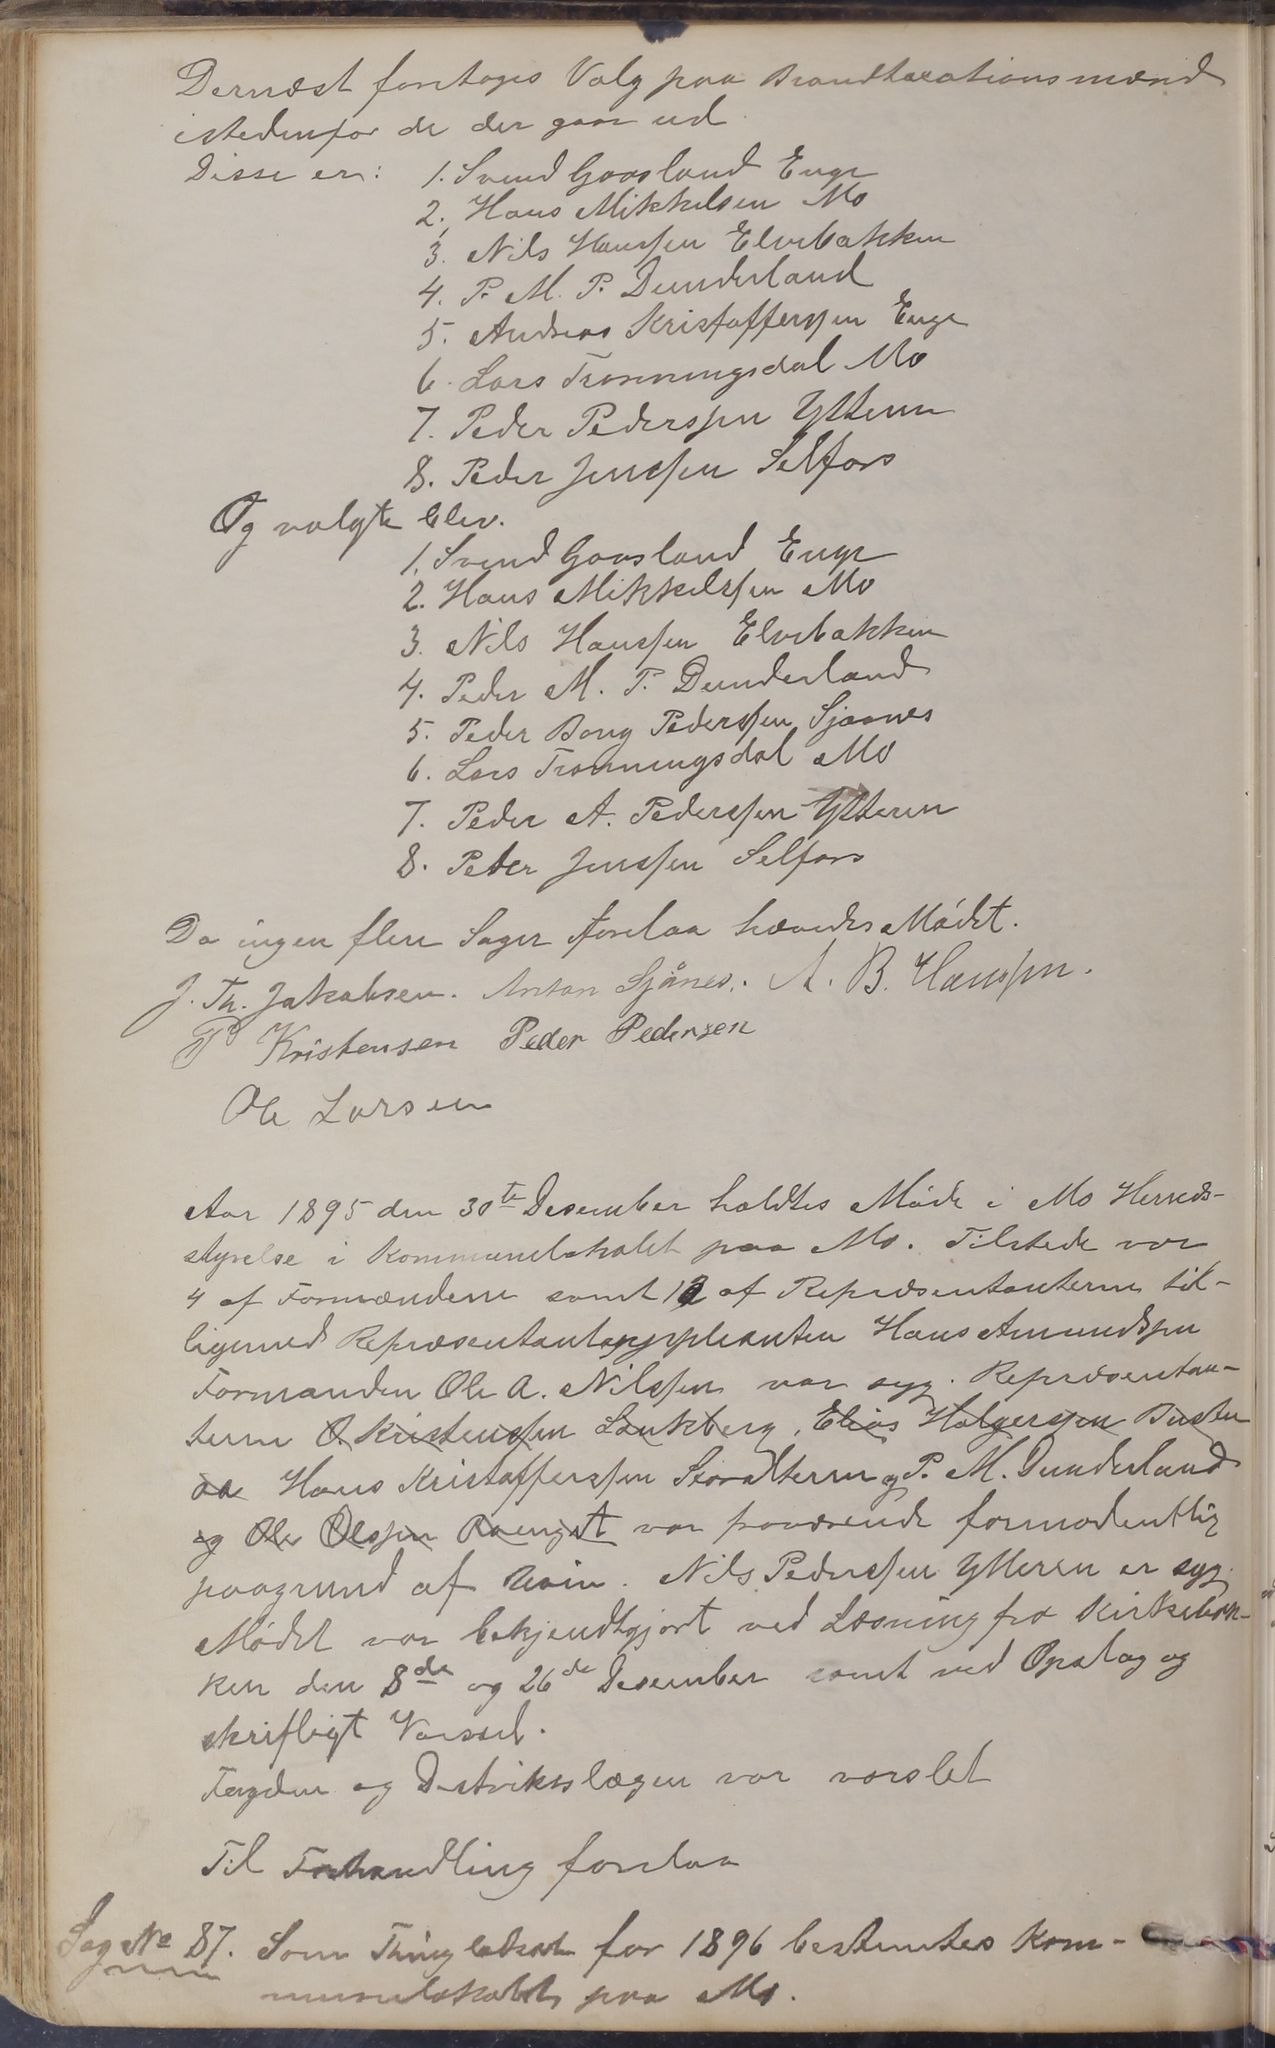 Dernæst foretages Valg paa Brandtaxationsmænd
istedenfor de der gaar ud.
Disse er: 1. Svend Gaasland Enge
2. Hans Mikkelsen Mo
3. Nils Hanssen Elvebakken
4. P. M. P. Dunderland
5. Andreas Kristofferssen Enge
6. Lars Tronningsdal Mo
7. Peder Pederssen Ytteren
8. Peder Jenssen Selfors
Og valgte blev.
1. Svend Gaasland Enge
2. Hans Mikkelssen Mo
3. Nils Hanssen Elvebakken
4. Peder M. P. Dunderland
5. Peder Bong Pederssen Sjaanes
6. Lars Tronningsdal Mo
7. Peder A. Pederssen Ytteren
8. Peder Jenssen Selfors
Da ingen flere Sager forelaa hævedes Mødet.
J. Th. Jakobsen. Anton Sjånes. A. B. Hanssen.
P Kristensen Peder Pedersen
Ole Larsen
Aar 1895 den 30te Desember holdtes Møde i Mo Herreds-
styrelse i Kommunelokalet paa Mo. Tilstede var
4 af Formændene samt 12 af Repræsentanterne til-
ligemed Repræsentantsuppleanten Hans Amundssen
Formanden Ole A. Nilssen var syg. Repræsentan-
terne O Kristenssen Lenkberg, Elias Holgerssen
Hans Kristofferssen Storalteren og P. M. Dunderland
og Ole Olssen var fraværende formodentlig
paagrund af Uveir. Nils Pederssen Ytteren er syg.
Mødet var bekjendtgjort ved Læsning fra Kirkebak-
ken den 8de og 26de Desember samt ved Opslag og
skriftligt Varsel.
Fogden og Distriktslægen var varslet
Til Forhandling forelaa
Sag No 87. Som Thinglokale for 1896 bestemtes Kom-
munelokalet paa Mo.